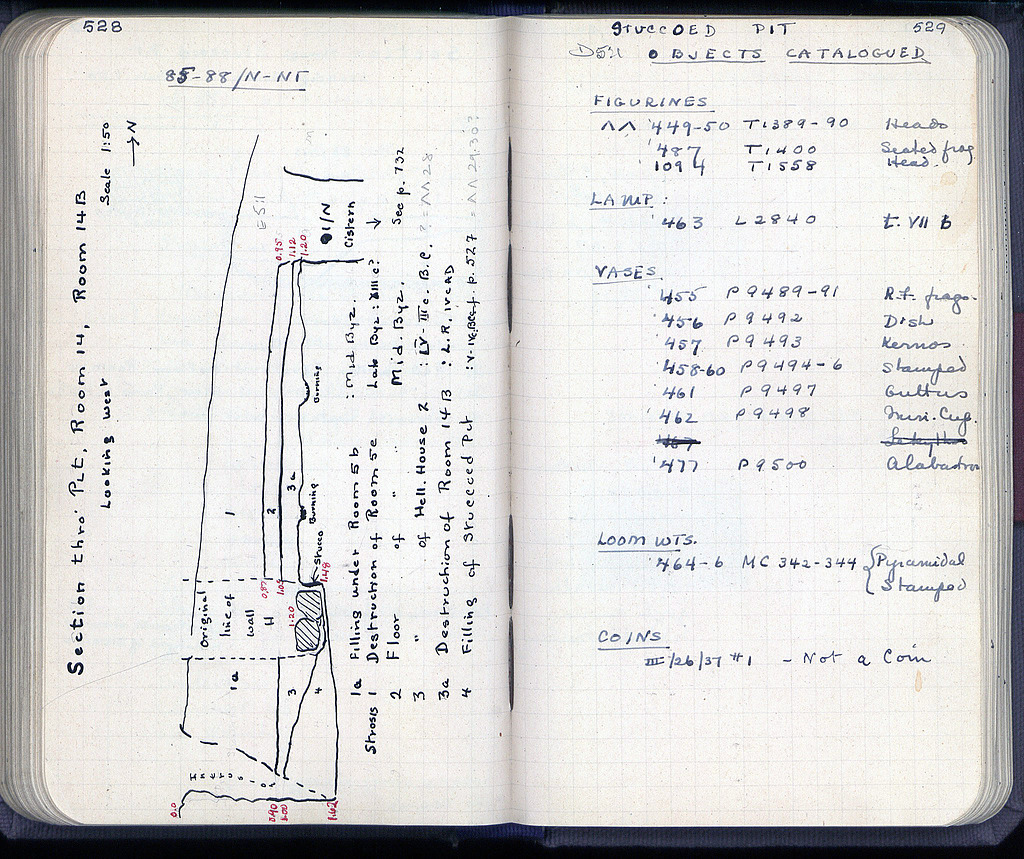 528
85-88/N-NΓ
Section thro' Pit, Room 14, Room 14B
Looking West
Scale 1:50
→N
E5:1
0.95
1.12
1.20
1/N
Cistern
Burning
Burning
Stucco
1.48
1
2
3a
Original
line of
wall
H
0.97
1.09
1.20
1a
3
4
0.0
0.90
1.00
1.62
1a Filling under Room 5b : Mid Byz.
Strosis 1 Destruction of Room 5e Late Byz: XIII c?
2 Floor of " Mid. Byz. See p. 732
3 " of Hell. House 2 : IV-III c. B.C. ? = ΛΛ 28
3a Destruction of Room 14B : L.R. IVc AD
4 Filling of Stuccoed Pit : V-IVc. BC cf. p. 527 = ΛΛ 29, 30?
529
STUCCOED PIT
D5:1 OBJECTS CATALOGUED
FIGURINES
ΛΛ '449-50 T1389-90 Heads
'487 T1400 Seated frag.
1094 T1558 Head.
LAMP:
'463 L2840 t. VII B
VASES
'455 P9489-91 R.f. frags.
'456 P9492 Dish
'457 P9493 Kernos
'458-60 P9494-6 Stamped
'461 P9497 Guttus
'462 P9498 Mini. Cup
'477 P9500 Alabastron
LOOM WTS.
'464-6 MC 342-344 { Pyramidal
Stamped
COINS
III/26/37 #1 - Not a Coin